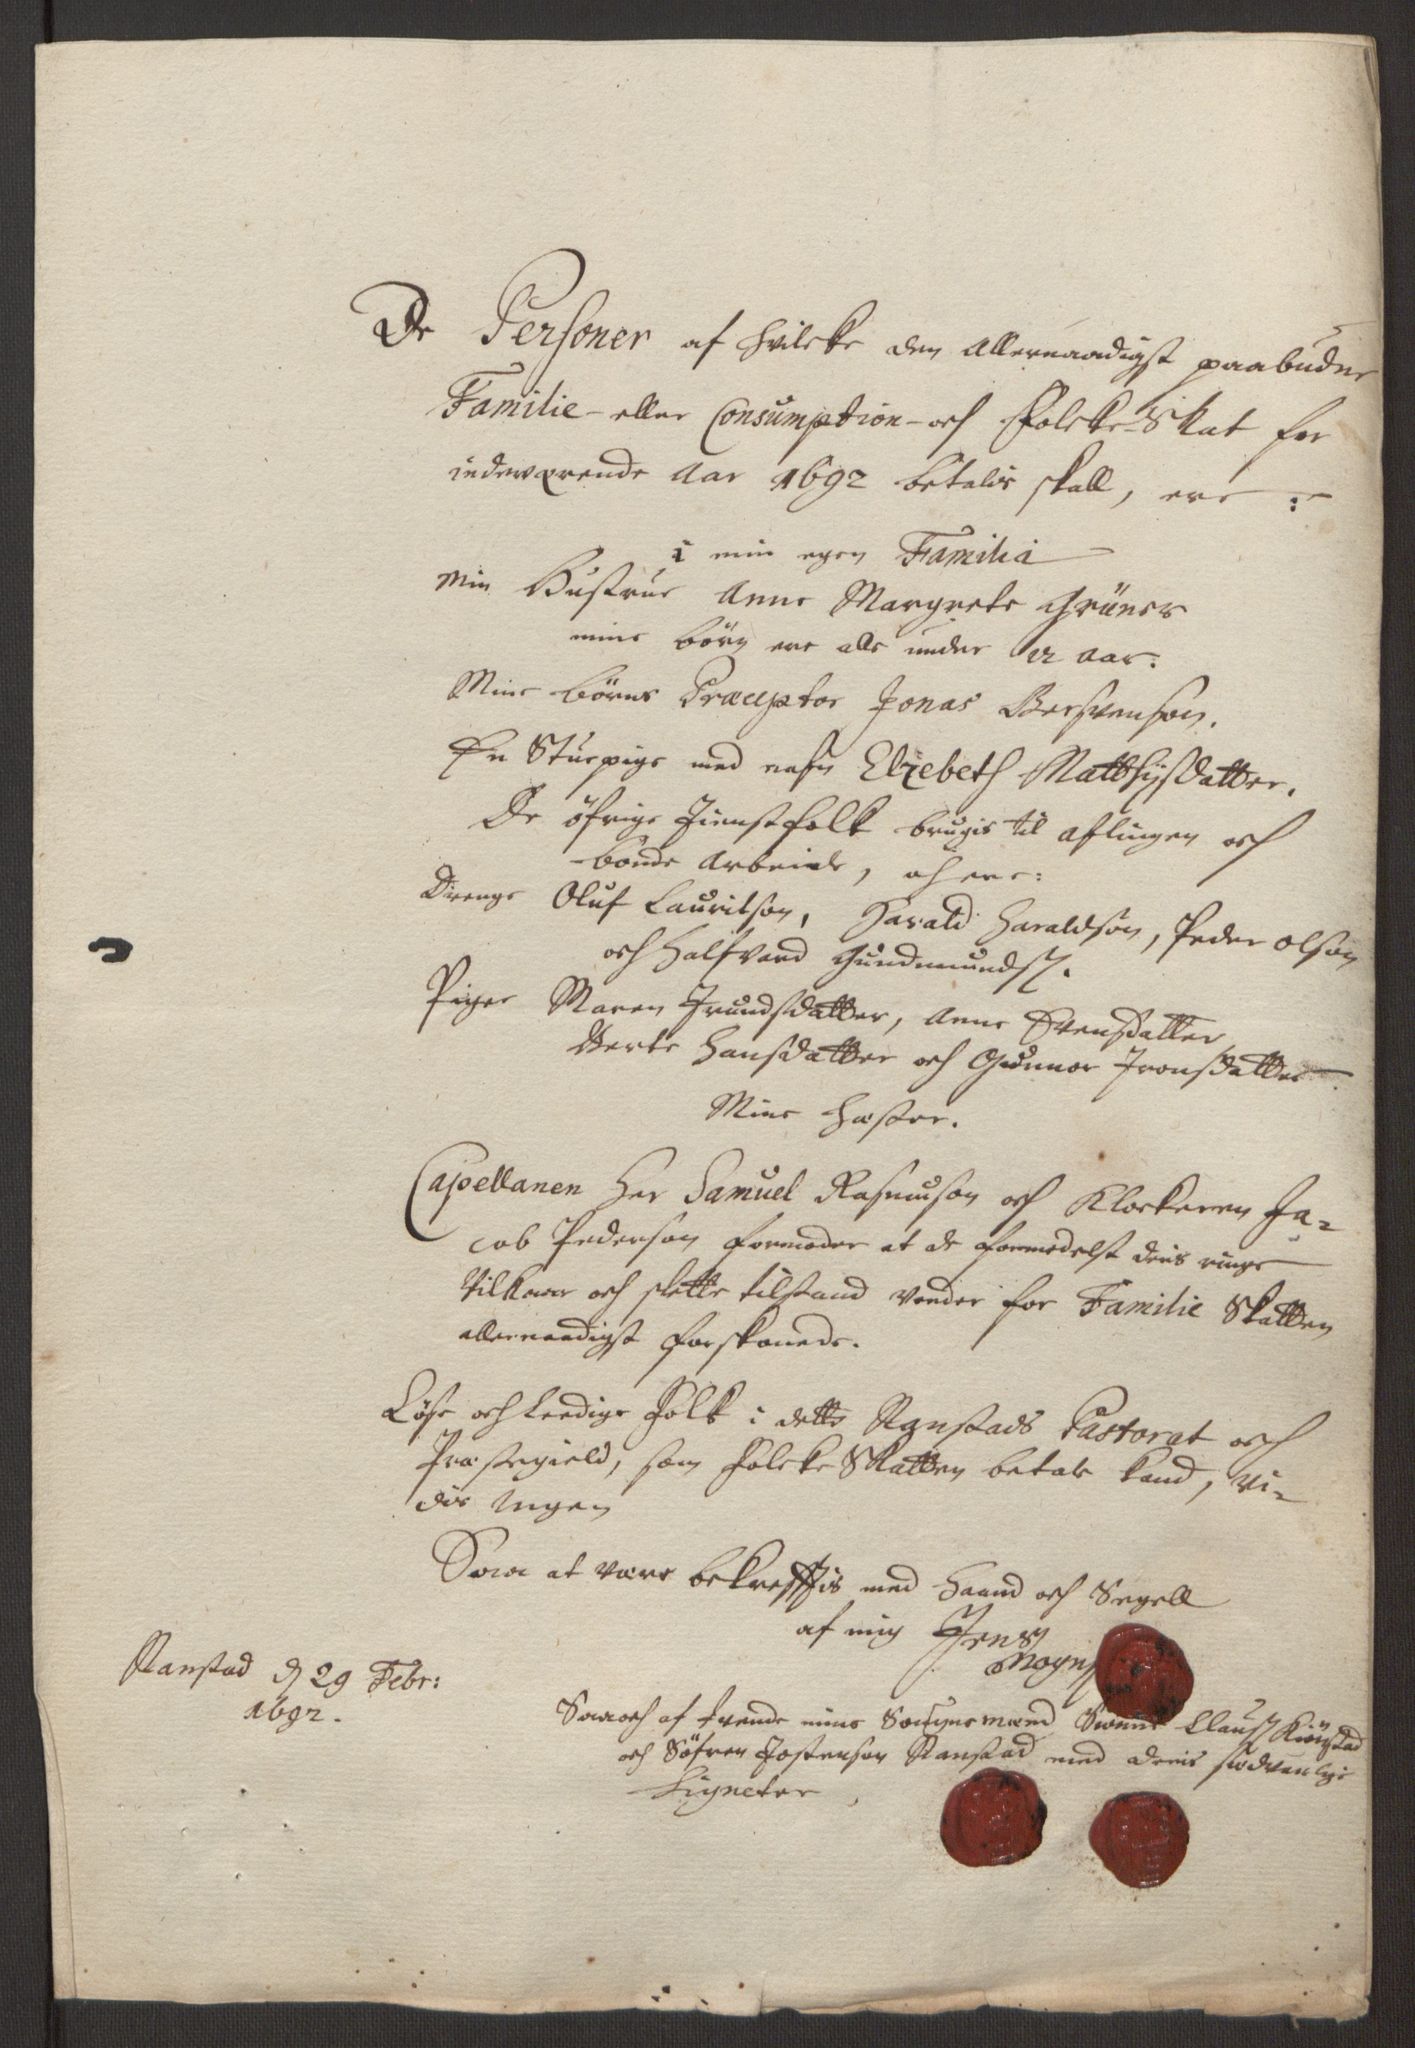 De Personer af hvilcke den Allernaadigst paabudne
Familie- eller Consumption- och Folcke-Skat for
indeværende Aar 1692 betalis skall, ere :
i min egen Familia
Min Hustrue Anne Margrete Grüners
mine börn ere alle under 12 aar:
Mine börns Præceptor Jonas Bersvenson.
En Stuepige med nafn Elzebeth Matthijsdatter.
De öfrige Tienistfolk brugis til aflingen och
bonde Arbeide, och ere:
Drenge Oluf Lauritson, Harald Haraldson, Peder Olson
och Halfvard Gundmunds.
Piger Maren Trundsdatter, Anne Svensdatter
Berte Hansdatter och Gunnor Tronsdatter
Mine Hæster.
Capellanen Her Samuel Rasmuson och Klockeren Ja-
cob Pederson formoder at de formedelst deris ringe
Vilkaar och slette tilstand vorder for Familie Skatten
allernaadigst forskonede.
Löse och Leedige Folk i dette Ranstads Pastorat och
Præstegield, som Folcke Skatten betale kand, vi-
dis Ingen
Saa at være bekreftis med Haand och Segell
af mig Jens
Mogns
Ranstad d 29 Febr:
1692.
Saa och af tvende mine Sougne mænd Svenne Clauss Kiönstad
och Söfren Jostenson Ranstad med deris sædvanlige
Signeter